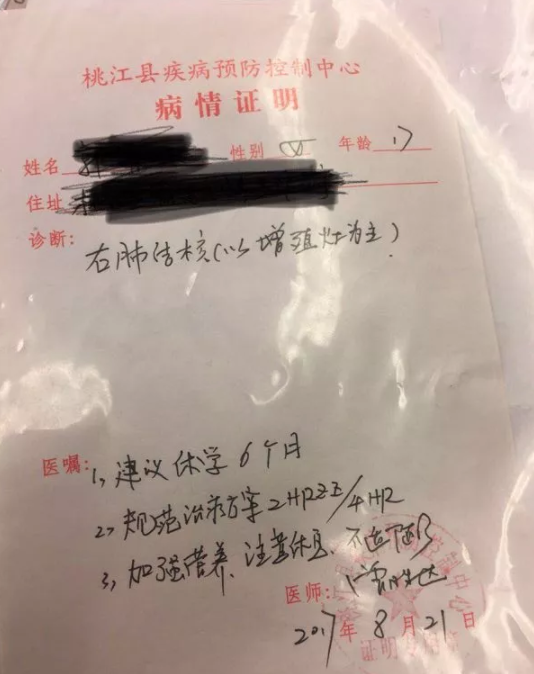 桃江县疾病预防控制中心
病情证明
姓名 性别 女 年龄 17
住址
诊断:
右肺结核(以增殖灶为主)
医嘱: 1, 建议休学6个月
2, 规范治疗方案 2HRZE/4HR
3, 加强营养、注意休息、不适随诊
医师:
2017年8月21日